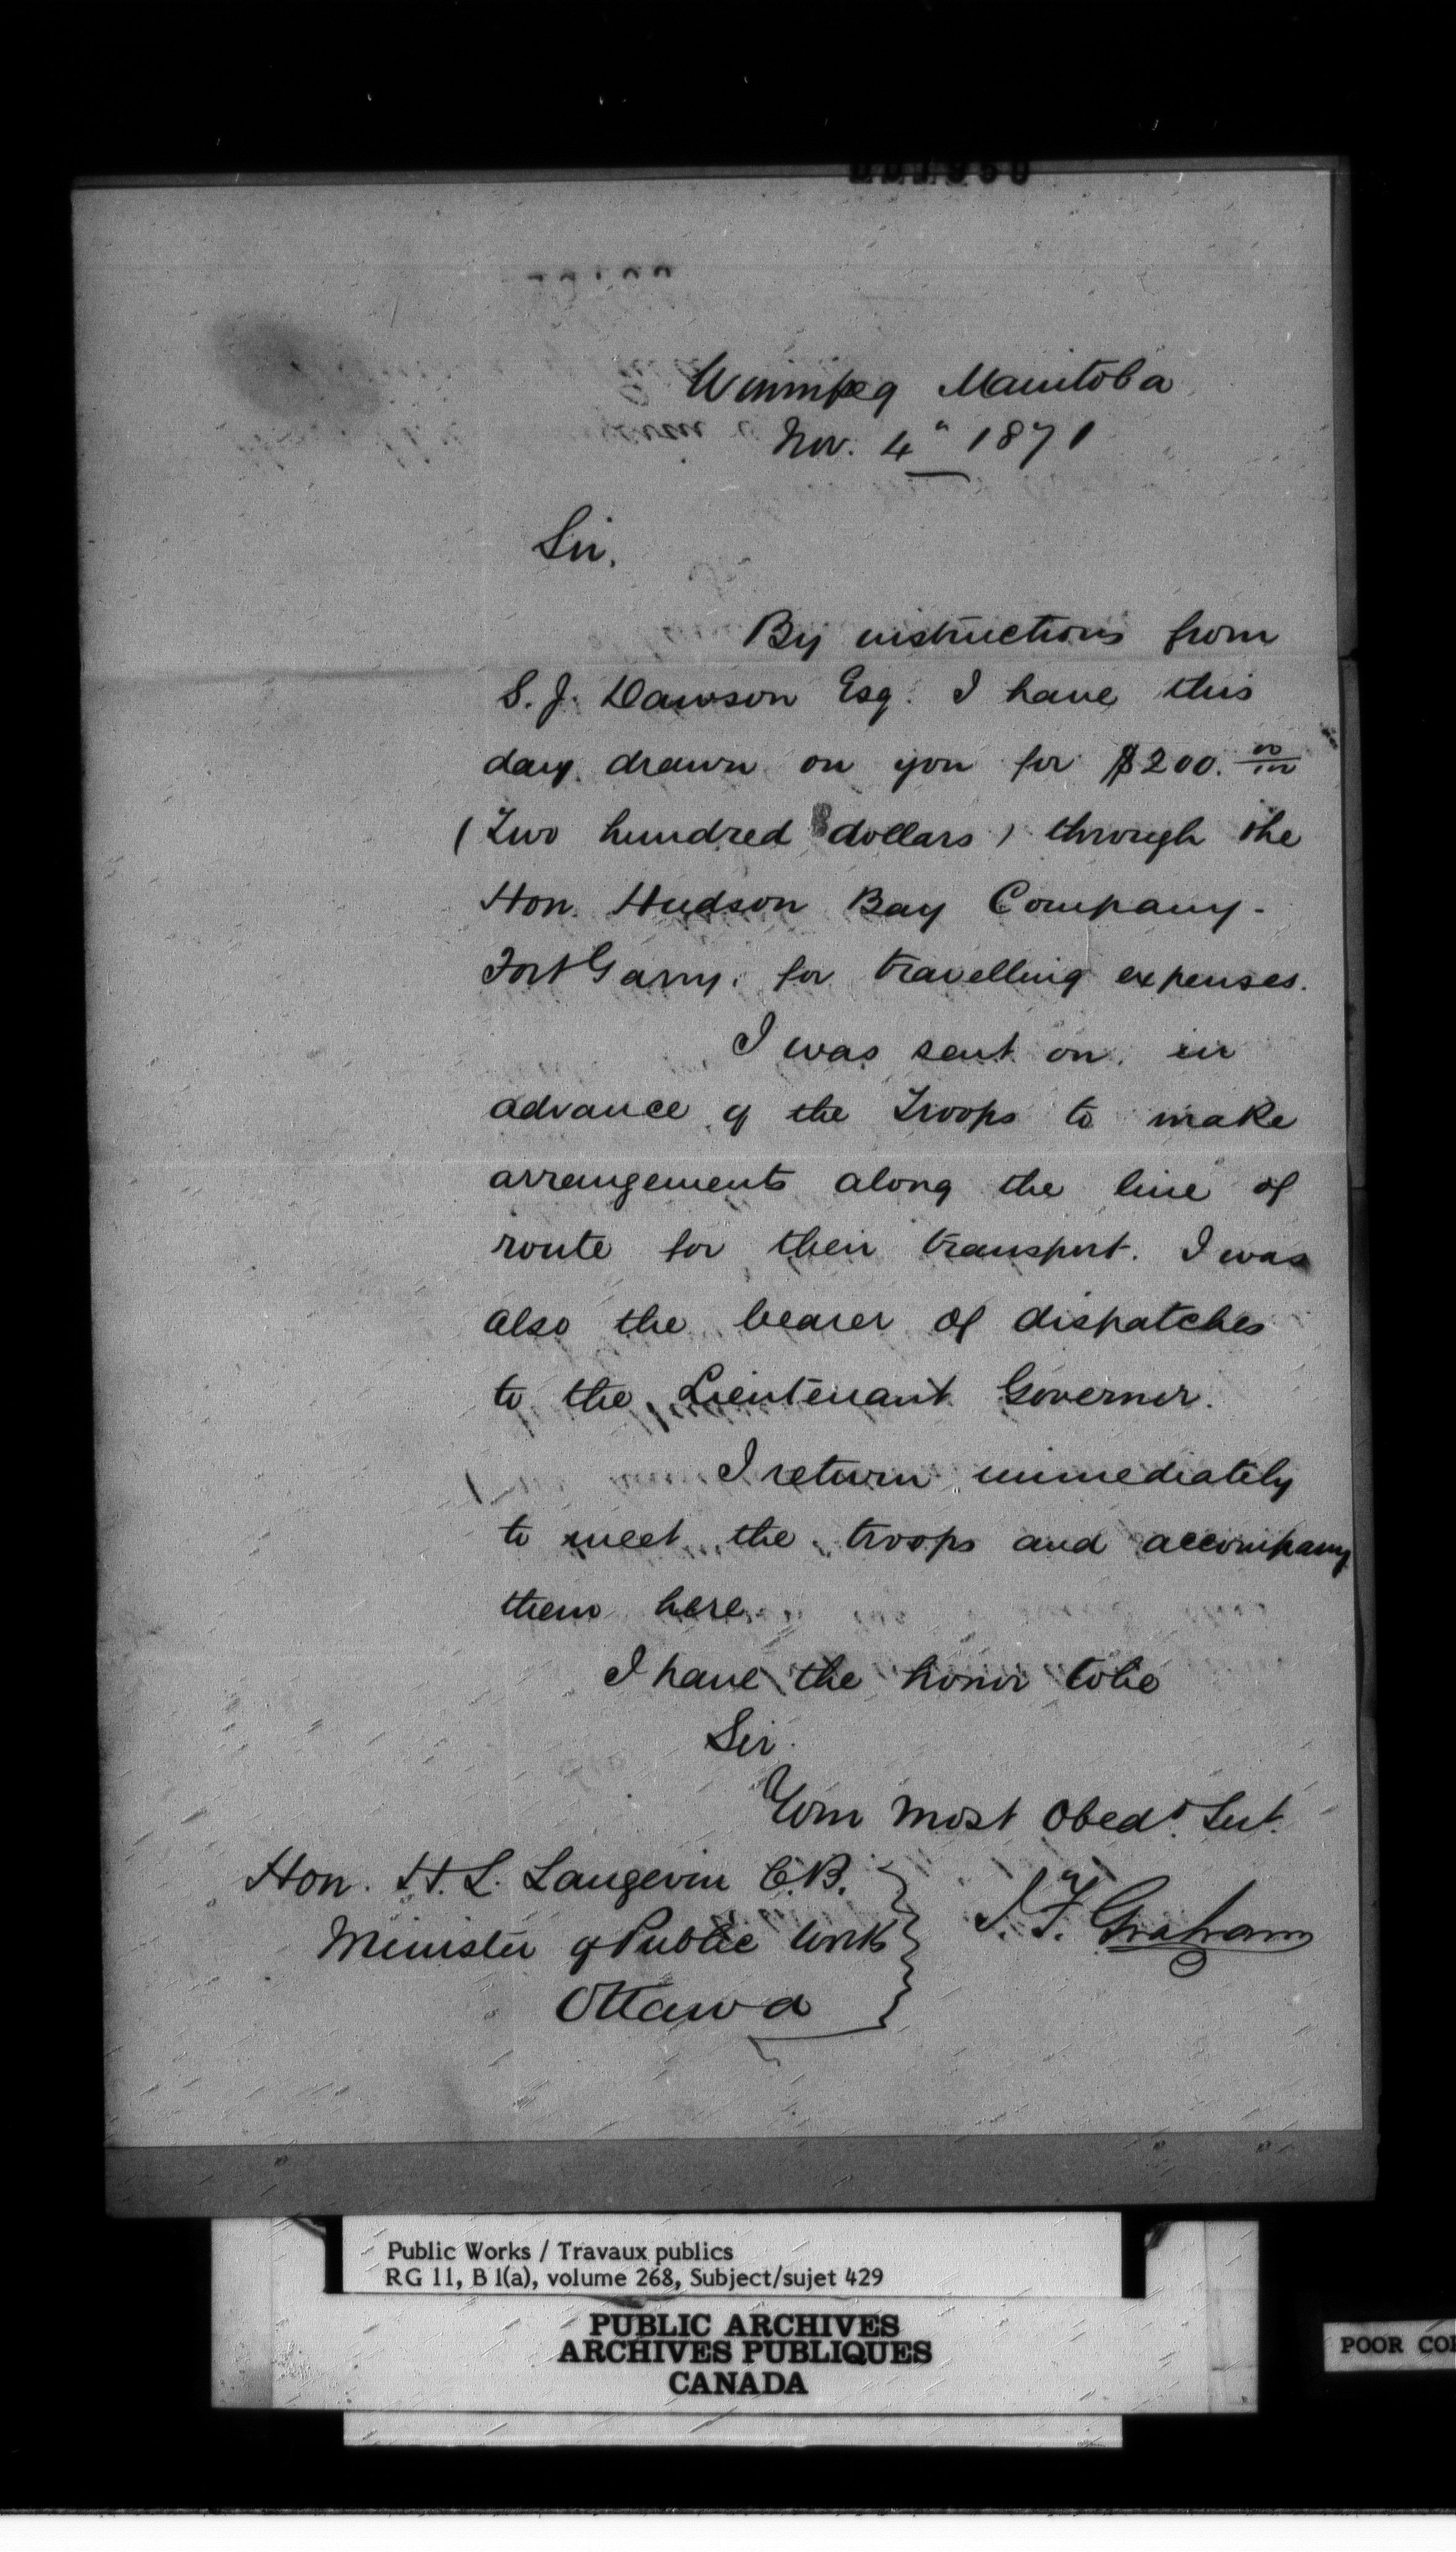 Winnipeg Manitoba
Nov. 4" 1871
Sir,
By instructions from
S. J. Dawson Esq. I have this
day drawn on you for $200. 00/100
(Two hundred dollars) through the
Hon. Hudson Bay Company -
Fort Garry, for travelling expenses.
I was sent on, in
advance of the Troops to make
arrangements along the line of
route for their transport. I was
also the bearer of dispatches
to the Lieutenant Governor.
I return immediately
to meet the troops and accompany
them here.
I have the honor to be
Sir.
Your most Obedt. Svt.
J. F. Graham
Hon. H. L. Langevin C.B.
Minister of Public Works
Ottawa
Public Works / Travaux publics
RG 11, B 1(a), volume 268, Subject/sujet 429
PUBLIC ARCHIVES
ARCHIVES PUBLIQUES
CANADA
POOR